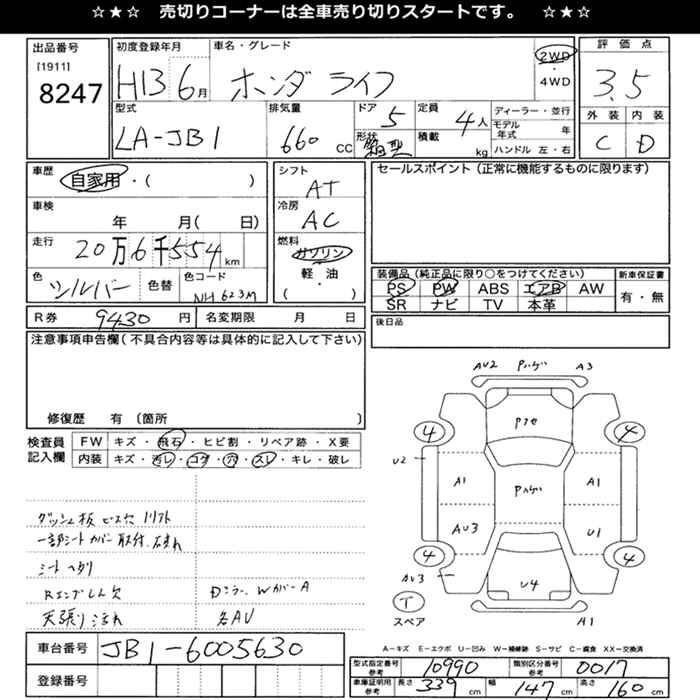 ☆★☆ 売切りコーナーは全車売り切りスタートです。 ☆★☆
出品番号
[1911]
8247
初度登録年月
H13 6月
車名・グレード
ホンダ ライフ
2WD
・
4WD
評価点
3.5
型式
LA-JB1
排気量
660 CC
ドア
5
形状
箱型
定員
4人
積載
kg
ディーラー・並行
モデル年式 年
ハンドル 左・右
外装 内装
C D
車歴
自家用・( )
車検
年 月( 日)
走行
20万6千554km
色
シルバー
色替
色コード
NH623M
シフト
AT
冷房
AC
燃料
ガソリン
軽・油
( )
セールスポイント(正常に機能するものに限ります)
装備品(純正品に限り○をつけてください)
PS PW ABS エアB AW
SR ナビ TV 本革
新車保証書
有・無
R券 9430円
名変期限 月 日
後日品
注意事項申告欄(不具合内容等は具体的に記入して下さい)
修復歴 有 〔箇所 〕
検査員記入欄
FW キズ・飛石・ヒビ割・リペア跡・X要
内装 キズ・汚レ・コゲ・穴・スレ・キレ・破レ
ダッシュ板 ビス穴 リフト
一部シートカバー取付、破れ
シートヘタリ
Rエンブレム欠
天張り汚れ
Dミラー、WカバーA
各AU
AU2 Pハゲ A3
4 4
Pアセ
U2
A1 Pハゲ A1
AU3 U1
4 4
AU3
U4
T
スペア
A1
A−キズ E−エクボ U−凹み W−補修跡 S−サビ C−腐食 XX−交換済
車台番号 JB1-6005630
登録番号
型式指定番号 参考 10990
類別区分番号 参考 0017
車庫証明用 参考 長さ 339cm 幅 147cm 高さ 160cm